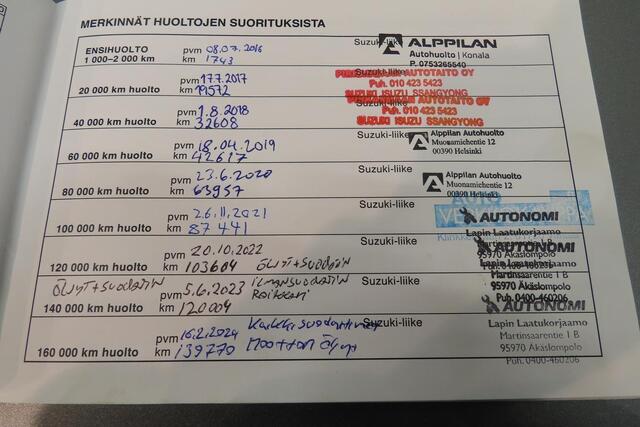 MERKINNÄT HUOLTOJEN SUORITUKSISTA
ENSIHUOLTO pvm 08.07.2016 Suzuki-liike ALPPILAN
Autohuolto | Konala
1 000–2 000 km km 1743 P. 0753265540
pvm 17.7.2017 Suzuki-liike AUTOTAITO OY
20 000 km huolto km 19572 Puh. 010 423 5423
SUZUKI ISUZU SSANGYONG
pvm 1.8.2018 Suzuki-liike AUTOTAITO OY
40 000 km huolto km 32608 Puh. 010 423 5423
SUZUKI ISUZU SSANGYONG
pvm 18.04.2019 Suzuki-liike Alppilan Autohuolto
60 000 km huolto km 42617 Muonamiehentie 12
00390 Helsinki
pvm 23.6.2020 Suzuki-liike Alppilan Autohuolto
80 000 km huolto km 63957 Muonamiehentie 12
00390 Helsinki
pvm 26.11.2021 Suzuki-liike AUTO
AUTONOMI
100 000 km huolto km 87441 Lapin Laatukorjaamo
Martinsaarentie 1 B
pvm 20.10.2022 Suzuki-liike AUTONOMI
95970 Äkäslompolo
120 000 km huolto km 103604 Öljyt+suodatin Lapin Laatukorjaamo
Puh. 0400-460206
Martinsaarentie 1 B
Öljyt+suodatin pvm 5.6.2023 Ilmansuodatin Suzuki-liike 95970 Äkäslompolo
Raikkani Puh. 0400-460206
140 000 km huolto km 120004 AUTONOMI
pvm 16.2.2024 Suzuki-liike Lapin Laatukorjaamo
Martinsaarentie 1 B
160 000 km huolto km 139770 Moottori Öljyt 95970 Äkäslompolo
Puh. 0400-460206